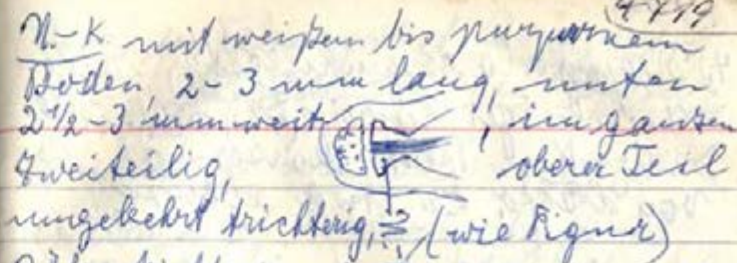 4779
N.-K mit weißem bis purpurnem
Boden, 2-3 mm lang, unten
2 1/2-3 mm weit, im ganzen
zweiteilig, oberer Teil
umgekehrt trichterig, ?, (wie Figur)